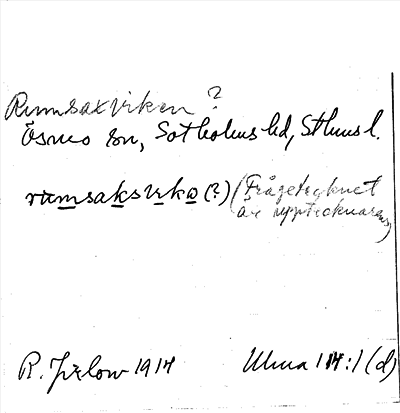 Rumsaxviken ?
Ösmo sn, Sotholms hd, Sthms l.
ramsaksvikα (?) (Frågetecknet
är upptecknarens)
R. Jirlow 1914
Ulma 114:1 (d)